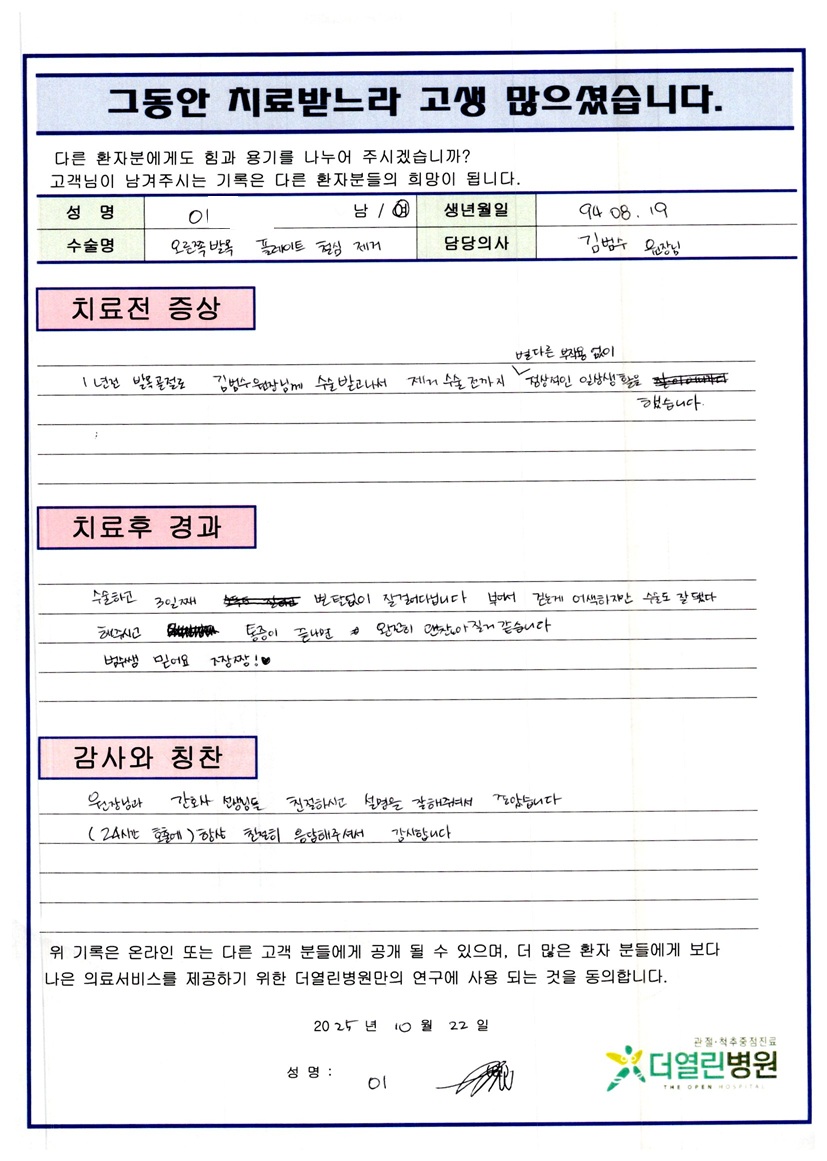 그동안 치료받느라 고생 많으셨습니다.
다른 환자분에게도 힘과 용기를 나누어 주시겠습니까?
고객님이 남겨주시는 기록은 다른 환자분들의 희망이 됩니다.
성 명 이 남 / 여 생년월일 94 08. 19
수술명 오른쪽발목 플레이트 철심 제거 담당의사 김범수 원장님
치료전 증상
별다른 부작용 없이
1년전 발목골절로 김범수원장님께 수술받고나서 제거 수술 전까지 정상적인 일상생활을
했습니다.
치료후 경과
수술하고 3일째 변탈없이 잘걸어다닙니다 부어서 걷는게 어색하지만 수술도 잘 됐다
해주시고 통증이 끝나면 완전히 괜찮아질거 같습니다
범수쌤 믿어요 짱짱!♥
감사와 칭찬
원장님과 간호사 선생님들 친절하시고 설명을 잘해주셔서 좋았습니다
(24시간 호출에) 항상 친절히 응답해주셔서 감사합니다
위 기록은 온라인 또는 다른 고객 분들에게 공개 될 수 있으며, 더 많은 환자 분들에게 보다
나은 의료서비스를 제공하기 위한 더열린병원만의 연구에 사용 되는 것을 동의합니다.
2025년 10월 22일
성 명 : 이
관절·척추중점진료
더열린병원
THE OPEN HOSPITAL